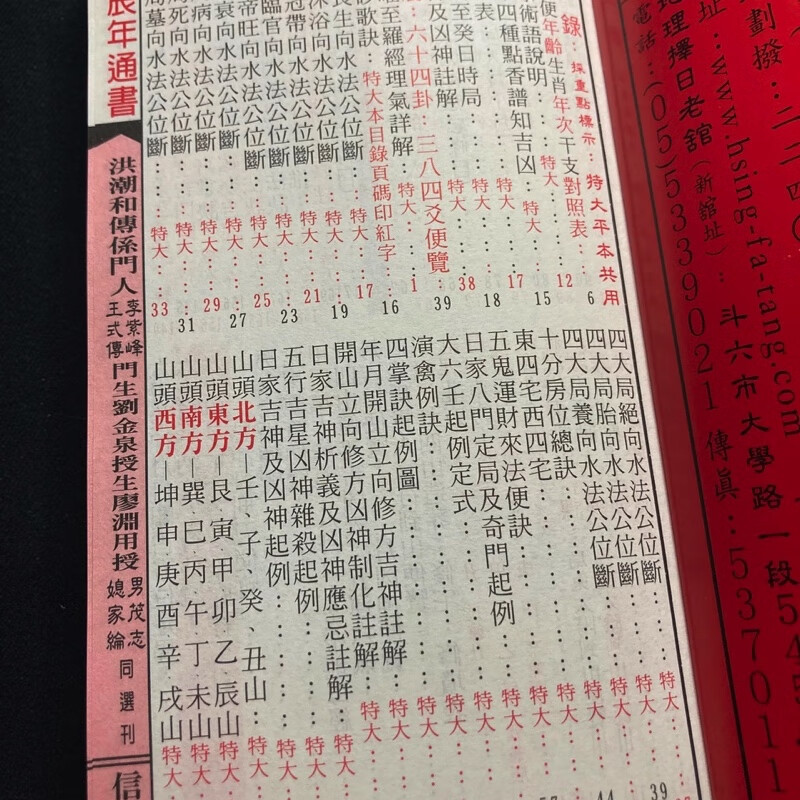 劃撥：二二四
址：www.hsing-fa-tang.com
地理擇日老舘（新舘址）：斗六市大學路一段545
電話：(05)5339021 傳眞：537011
錄：採重點標示：特大平本共用
便年齡生肖年次干支對照表：6
術語說明：特大12
四種點香譜知吉凶：特大15
表：特大17
至癸日時局：特大18
及凶神註解：特大38
六十四卦：三八四爻便覽39
至羅經理氣詳解：特大1
砂歌訣：特大本目錄頁碼印紅字16
長生向水法公位斷：特大17
沐浴向水法公位斷：19
冠帶向水法公位斷：特大21
臨官向水法公位斷：23
帝旺向水法公位斷：特大25
衰向水法公位斷：27
病向水法公位斷：特大29
死向水法公位斷：31
墓向水法公位斷：特大33
四大局絕向水法公位斷：特大
四大局胎向水法公位斷：特大39
四大局養向水法公位斷：特大
十分房位總訣：特大44
東四宅西四宅：特大
五鬼運財來法便訣：特大
日家八門定局及奇門起例：特大
大六壬起例定式：特大
演禽例訣：特大
四掌訣起例圖：特大
年月開山立向修方吉神註解：特大
開山立向修方凶神制化註解：特大
日家吉神析義及凶神應忌註解：特大
五行吉星凶神雜殺起例：特大
日家吉神及凶神起例：特大
山頭北方─壬、子、癸、丑山：特大
山頭東方─艮寅甲卯乙辰山：特大
山頭南方─巽巳丙午丁未山：特大
山頭西方─坤申庚酉辛戌山：特大
辰年通書
洪潮和傳係門人李紫峰王式傳門生劉金泉授生廖淵用授男茂志媳家綸同選刊
信